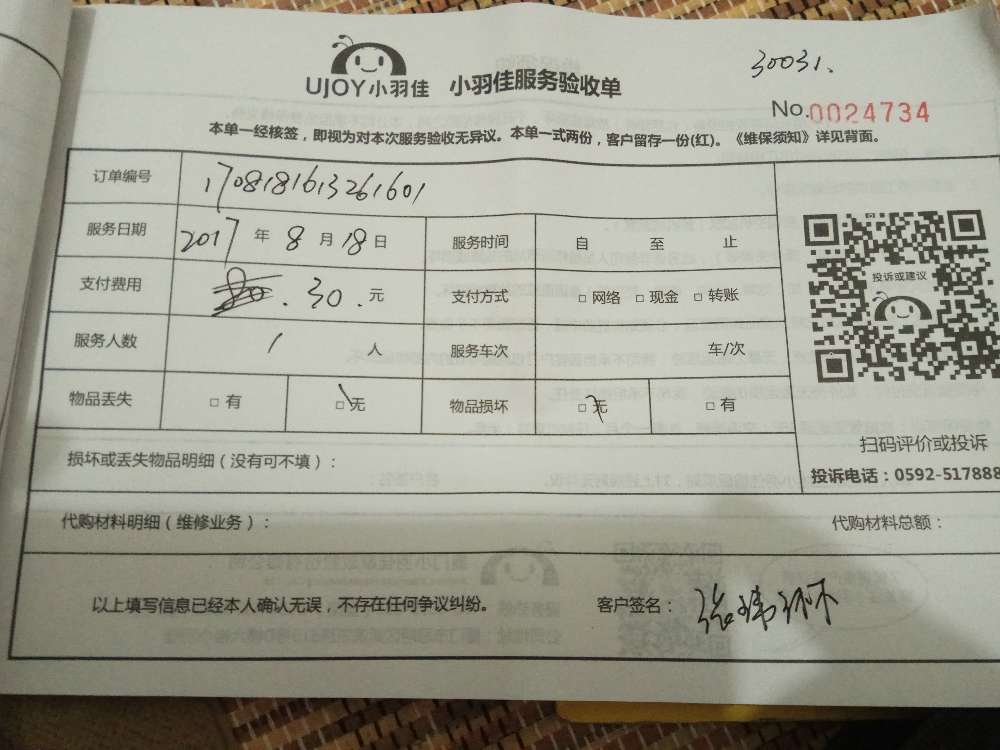 30031.
UJOY小羽佳 小羽佳服务验收单
No.0024734
本单一经核签，即视为对本次服务验收无异议。本单一式两份，客户留存一份(红)。《维保须知》详见背面。
订单编号 1708181613261601
服务日期 2017 年 8 月 18 日 服务时间 自 至 止
支付费用 30. 元 支付方式 □网络 □现金 □转账
服务人数 1 人 服务车次 车/次
物品丢失 □有 □无 物品损坏 □无 □有
投诉或建议
扫码评价或投诉
投诉电话：0592-517888
损坏或丢失物品明细（没有可不填）：
代购材料明细（维修业务）： 代购材料总额：
以上填写信息已经本人确认无误，不存在任何争议纠纷。 客户签名：